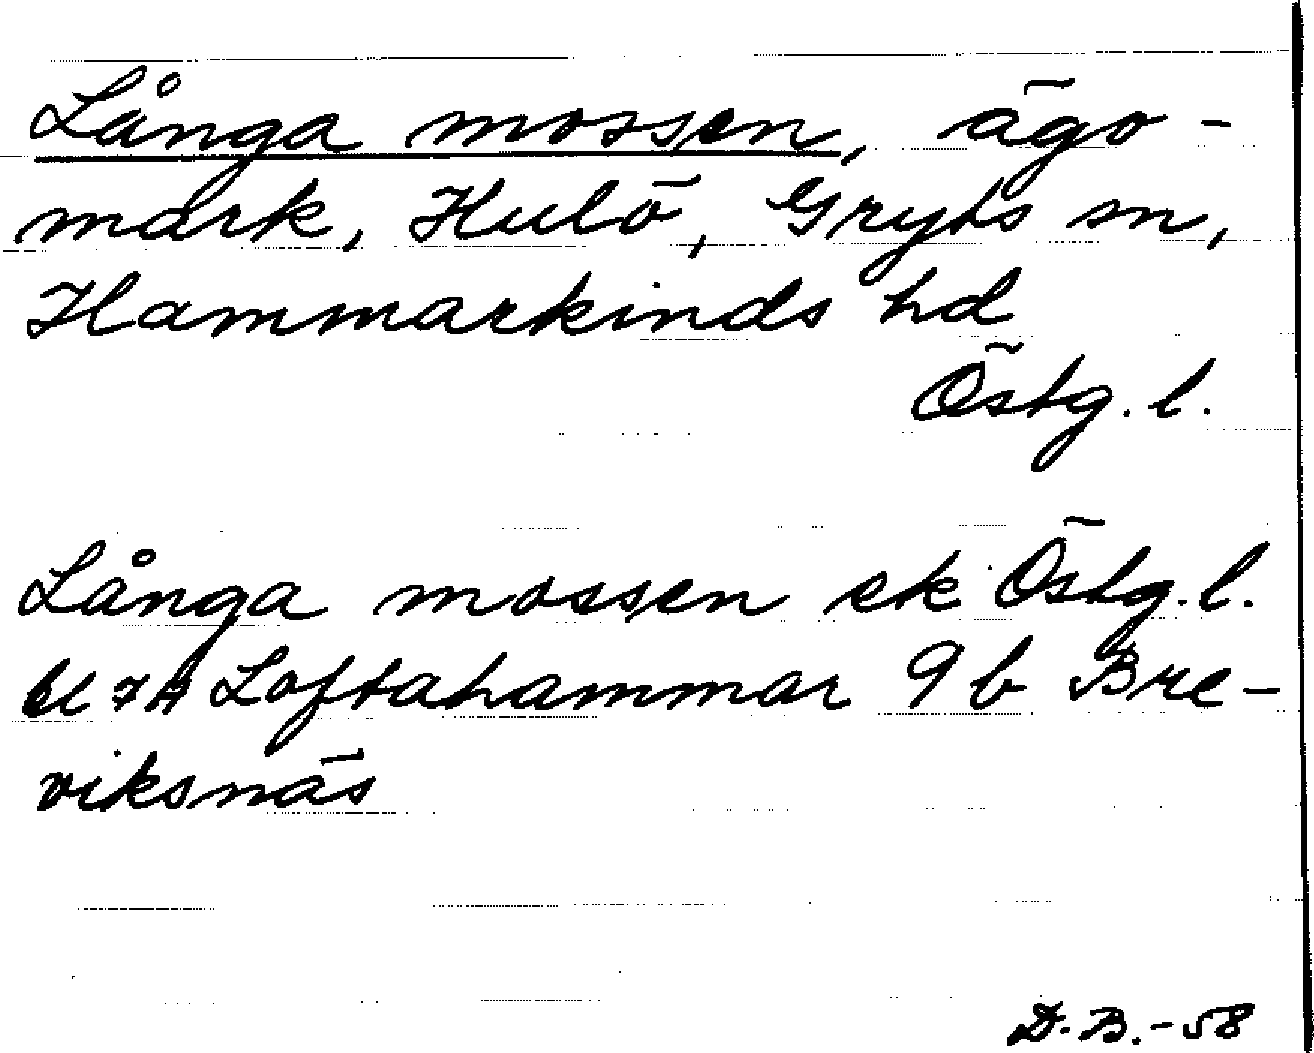 Långa mossen, ägo-
mark, Hulö, Gryts sn,
Hammarkinds hd
Östg. l.
Långa mossen ek Östg. l.
Bl 7H Loftahammar 9b Bre-
viksnäs
D.B.-58